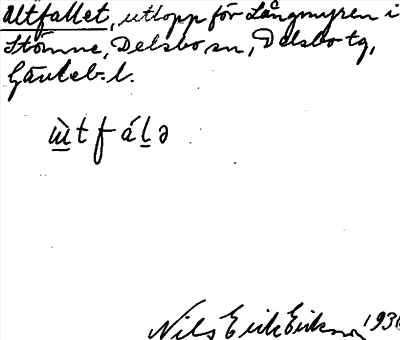 Utfallet, utlopp för Långmyren i
Stömne, Delsbo sn, Delsbo tg,
Gävleb. l.
ɯ̀tfálə
Nils Erik Erikson 193